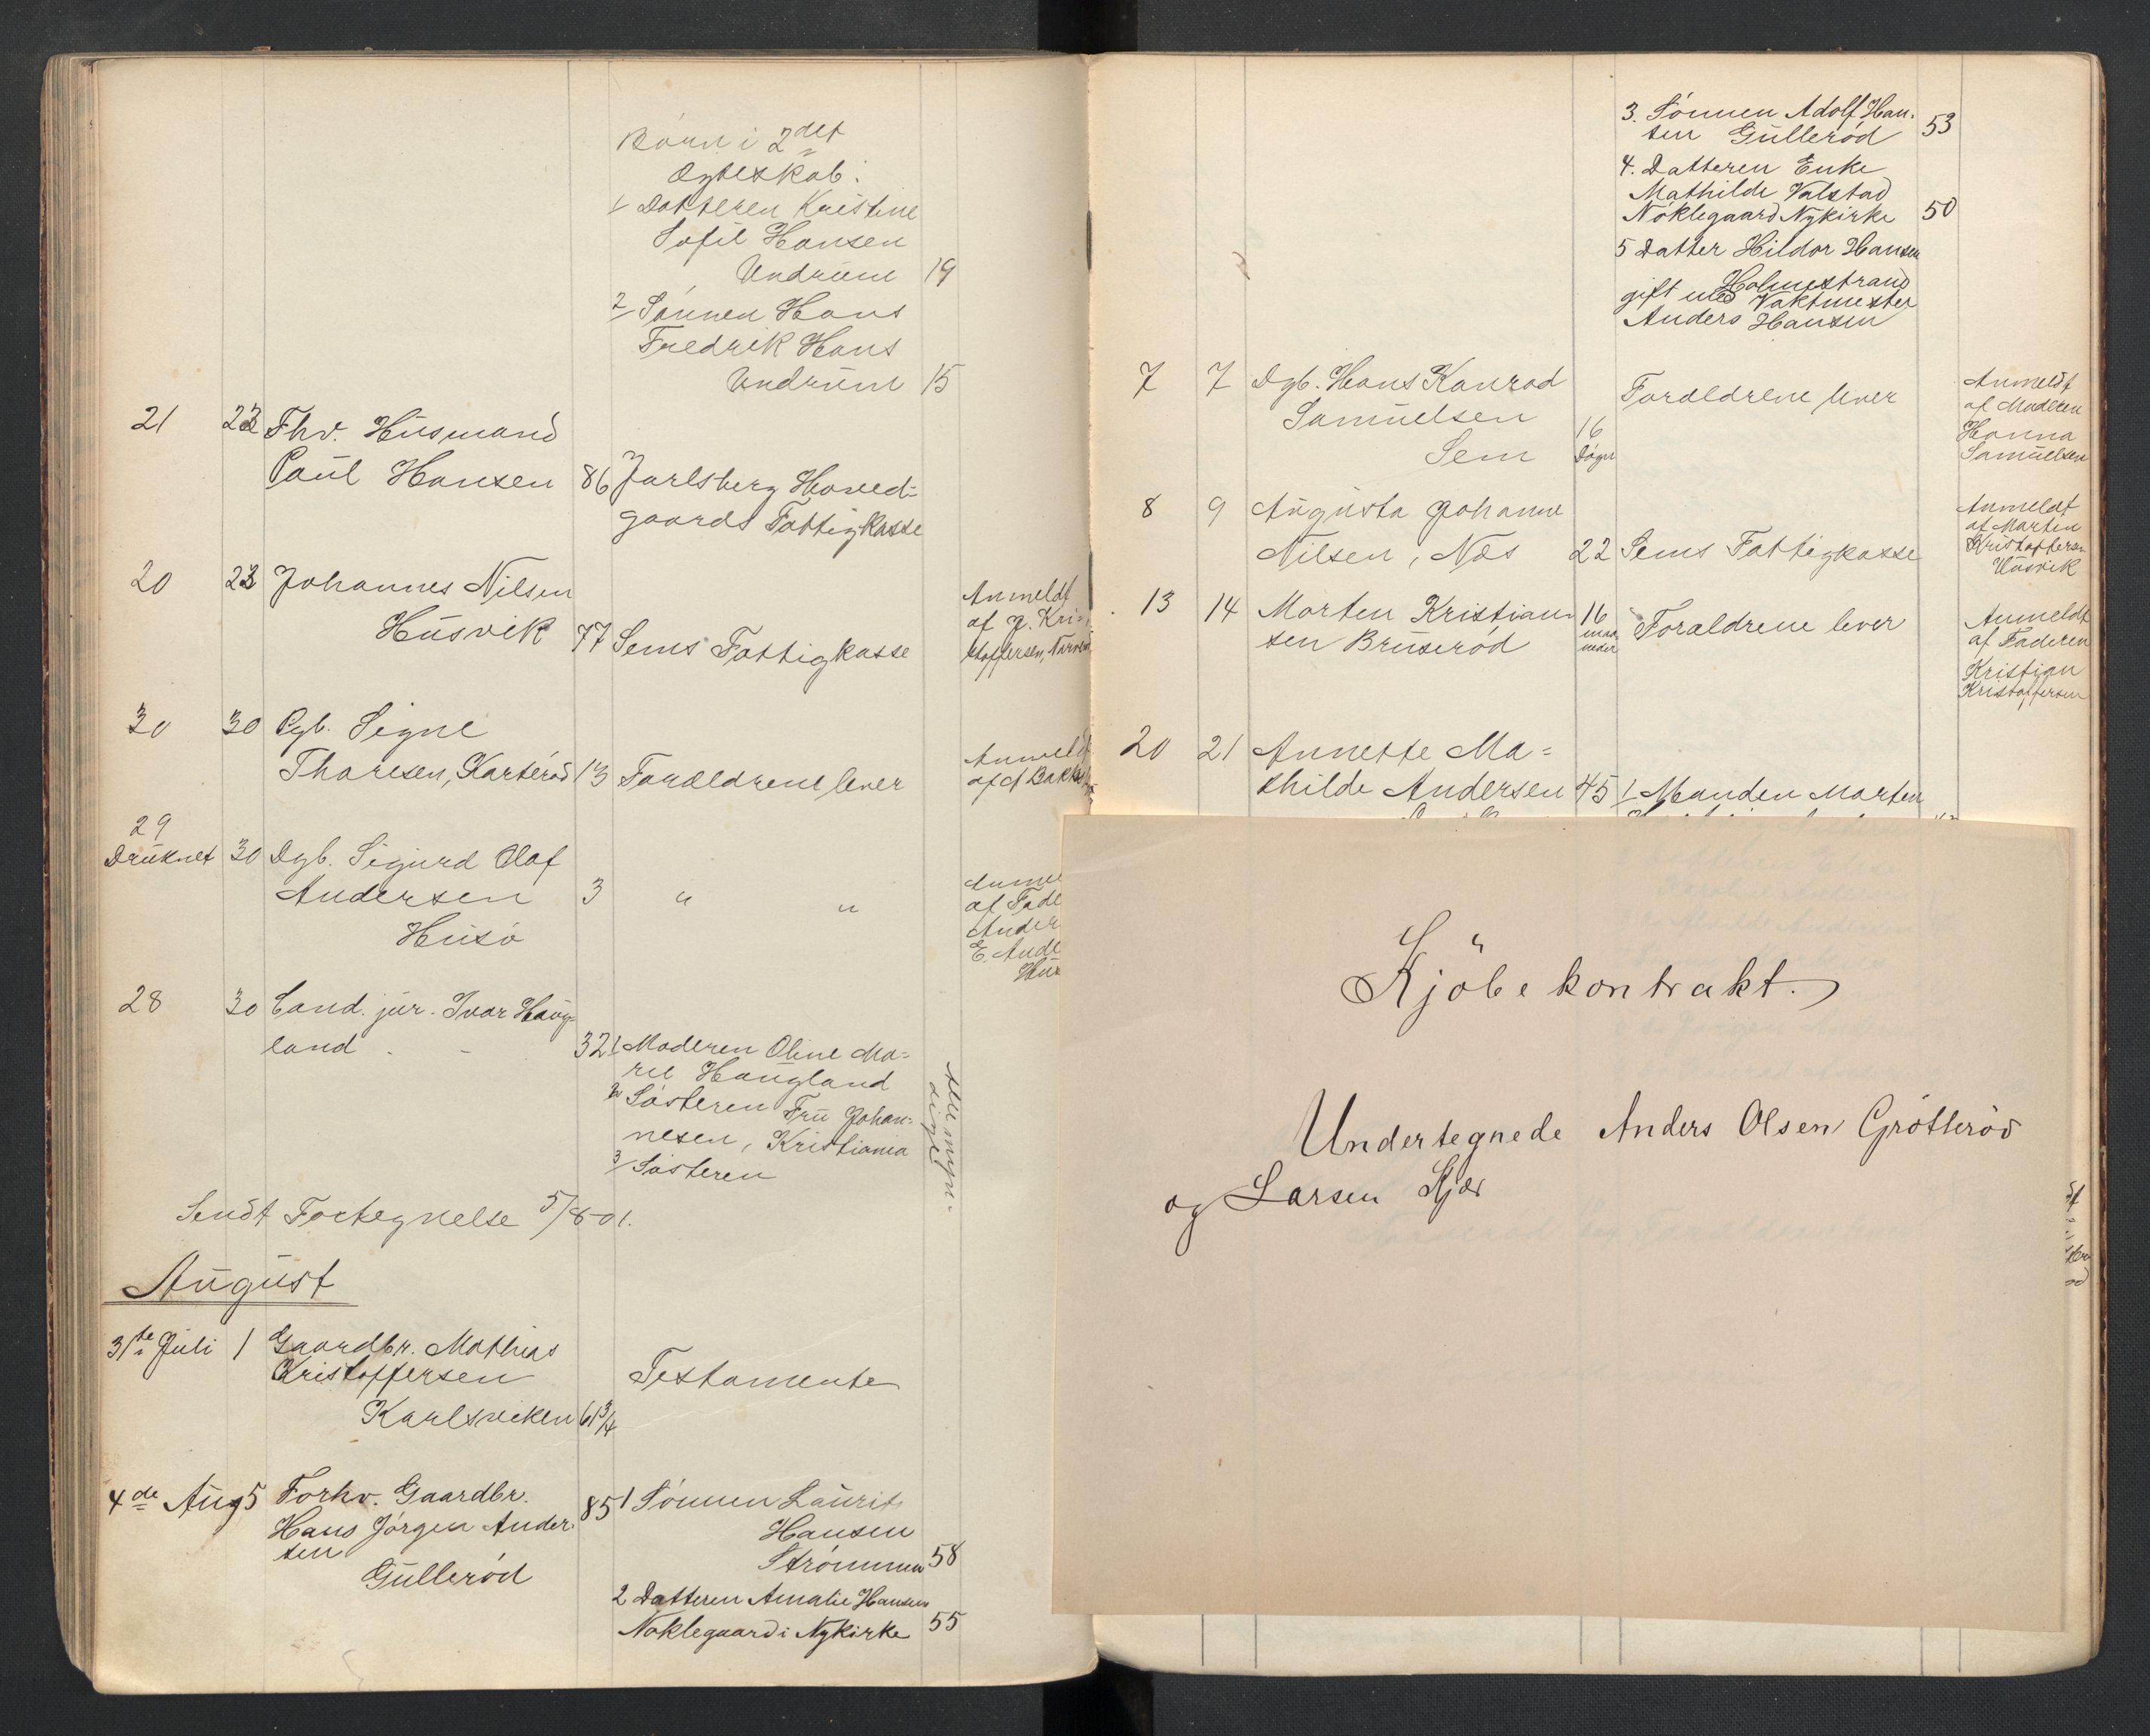 Børn i 2det
Ægteskab:
1/ Datteren Kristine
Sofie Hansen
Undrum 19
2/ Sønnen Hans
Fredrik Hans
Undrum 15
21 22 Fhv. Husmand
Paul Hansen 86 Jarlsberg Hoved-
gaards Fattigkasse
20 23 Johannes Nilsen
Husvik 77 Sems Fattigkasse
Anmeldt
af J. Kri-
stoffersen,
30 30 Pgb. Signe
Thoresen, Karterød 13 Forældrene lever
Anmeldt
af
29
Druknet 30 Dgb. Sigurd Olaf
Andersen 3 " "
Husø
af Fade
Ander
E. Ande
28 30 Cand. jur. Ivar Haug-
land 32 1/ Moderen Oline Ma-
rie Haugland
2/ Søsteren Fru Johan-
nesen, Kristiania
3/ Søsteren
Alle myn-
dige
Sendt Fortegnelse 5/8-01.
August
31te Juli 1 Gaardbr. Mathias
Kristoffersen Testamente
Karlsviken 61 3/4
4de Aug 5 Forhv. Gaardbr. 85 1 Sønnen Laurits
Hans Jørgen Ander- Hansen
sen Strømmen 58
Gullerød
2 Datteren Amalie Hansen
Nøklegaard i Nykirke 55
3. Sønnen Adolf Han-
sen Gullerød 53
4. Datteren Enke
Mathilde Valstad
Nøklegaard Nykirke 50
5 Datter Hildor Hansen
Holmestrand
gift med Vaktmester
Anders Hansen
7 7 Dgb. Hans Konrad
Samuelsen 16 Forældrene lever
Sem Døgn
Anmeldt
af Moderen
Hanna
Samuelsen
8 9 Augusta Johanne
Nilsen, Næs 22 Sems Fattigkasse
Anmeldt
af Martin
Kristoffersen
Husvik
13 14 Morten Kristian-
sen Bruserød 16 maa-neder Forældrene lever
Anmeldt
af Faderen
Kristian
Kristoffersen
20 21 Annette Ma-
thilde Andersen 45 1/ Manden Morten
Kjøbekontrakt.
Undertegnede Anders Olsen Grøtterød
og Larsen Kjær